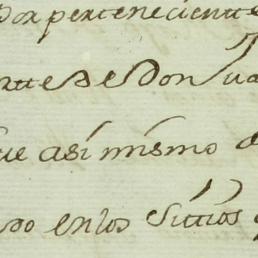 dor perteneciente
nte de Don Jua
ue asi mismo d
do en los sittios